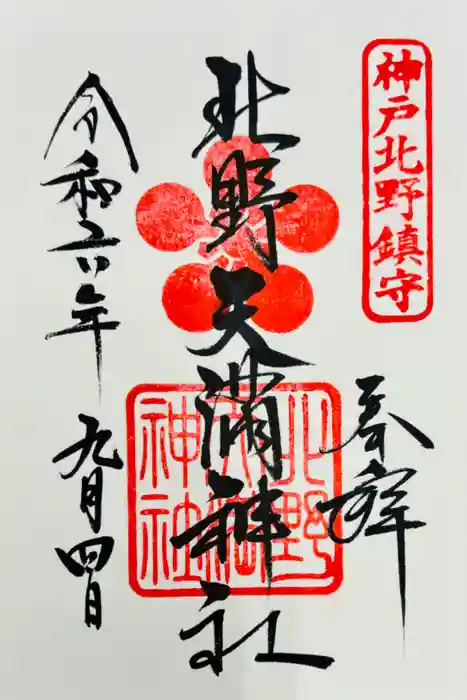 神戸北野鎮守
奉拝
北野天満神社
北野
天満
神社
令和六年 九月四日